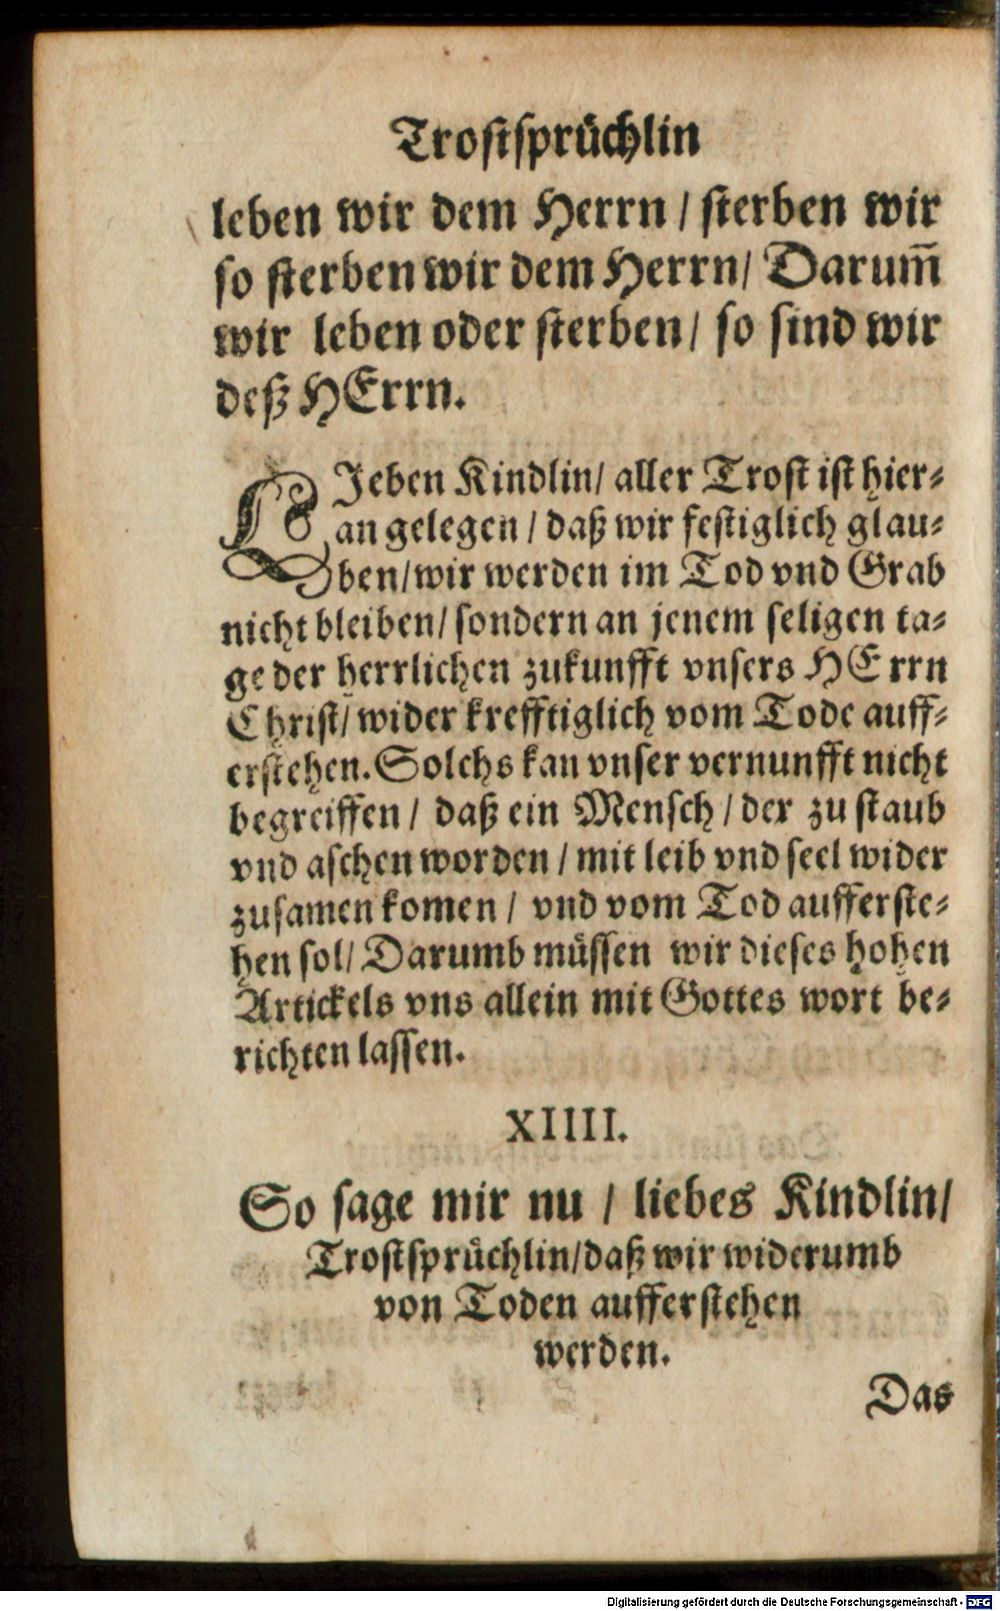 Trostsprüchlin
leben wir dem Herrn / sterben wir
so sterben wir dem Herrn / Darum̃
wir leben oder sterben / so sind wir
deß HErrn.
LIeben Kindlin / aller Trost ist hier-
an gelegen / daß wir festiglich glau-
ben / wir werden im Tod vnd Grab
nicht bleiben / sondern an jenem seligen ta-
ge der herrlichen zukunfft vnsers HErrn
Christ / wider krefftiglich vom Tode auff-
erstehen. Solchs kan vnser vernunfft nicht
begreiffen / daß ein Mensch / der zu staub
vnd aschen worden / mit leib vnd seel wider
zusamen komen / vnd vom Tod aufferste-
hen sol / Darumb müssen wir dieses hohen
Artickels vns allein mit Gottes wort be-
richten lassen.
XIIII.
So sage mir nu / liebes Kindlin /
Trostsprüchlin / daß wir widerumb
von Toden aufferstehen
werden.
Das
Digitalisierung gefördert durch die Deutsche Forschungsgemeinschaft - DFG